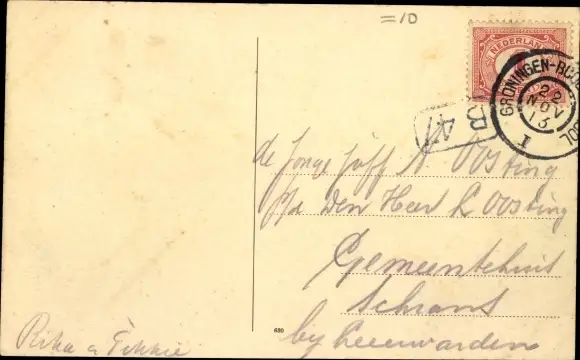 =10
NEDERLAND
GRONINGEN-ROO OL
22
NOV
15
I
B
47
de Jonge Juff A Oosting
p/a Den Heer R Oosting
Gemeentehuis
Schrans
by Leeuwarden
Rika
680